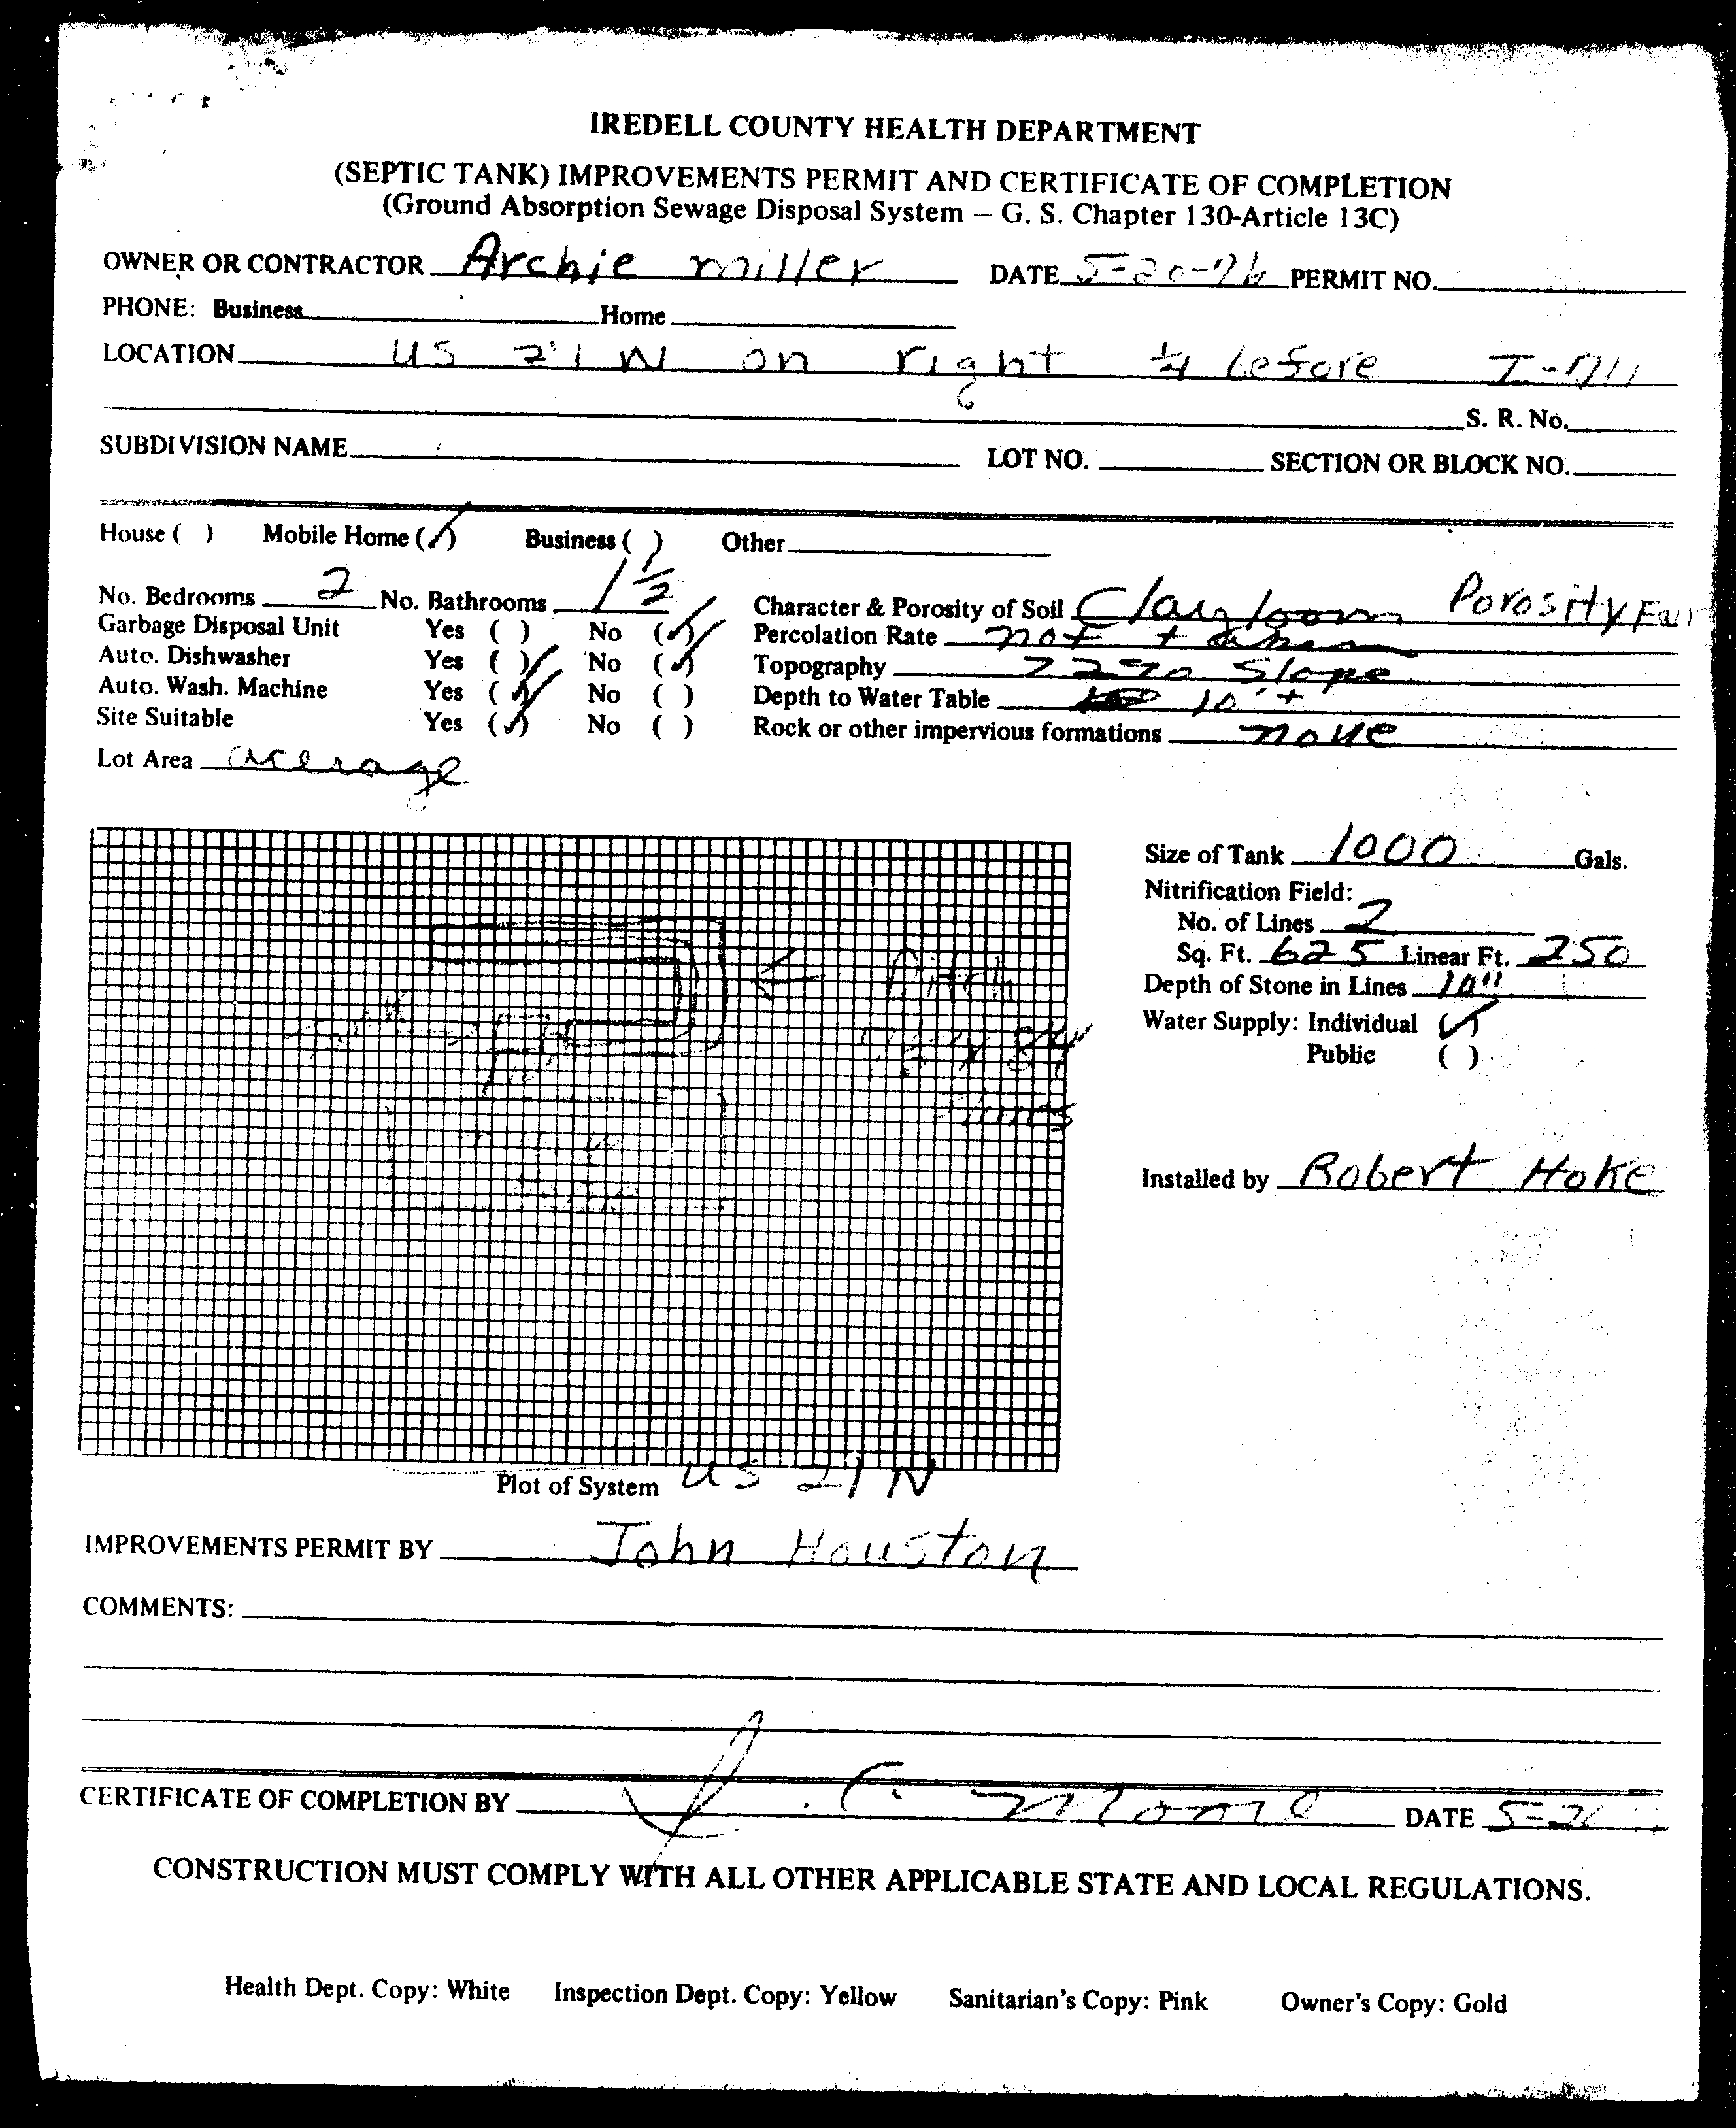 IREDELL COUNTY HEALTH DEPARTMENT
(SEPTIC TANK) IMPROVEMENTS PERMIT AND CERTIFICATE OF COMPLETION
(Ground Absorption Sewage Disposal System – G. S. Chapter 130-Article 13C)
OWNER OR CONTRACTOR Archie miller DATE 5-20-76 PERMIT NO.
PHONE: Business Home
LOCATION US 21 N on right 1/4 before
S. R. No.
SUBDIVISION NAME LOT NO. SECTION OR BLOCK NO.
House ( ) Mobile Home (✓) Business ( ) Other
No. Bedrooms 2 No. Bathrooms 1 1/2 Character & Porosity of Soil Clay loam Porosity Fair
Garbage Disposal Unit Yes ( ) No (✓) Percolation Rate not taken
Auto. Dishwasher Yes ( ) No (✓) Topography Slope
Auto. Wash. Machine Yes (✓) No ( ) Depth to Water Table 10'+
Site Suitable Yes (✓) No ( ) Rock or other impervious formations none
Lot Area acerage
Size of Tank 1000 Gals.
Nitrification Field:
No. of Lines 2
Sq. Ft. 625 Linear Ft. 250
Depth of Stone in Lines 10"
Water Supply: Individual (✓)
Public ( )
Installed by Robert Hoke
Plot of System US 21 N
IMPROVEMENTS PERMIT BY John Houston
COMMENTS:
CERTIFICATE OF COMPLETION BY J. C. Moore DATE
CONSTRUCTION MUST COMPLY WITH ALL OTHER APPLICABLE STATE AND LOCAL REGULATIONS.
Health Dept. Copy: White Inspection Dept. Copy: Yellow Sanitarian's Copy: Pink Owner's Copy: Gold